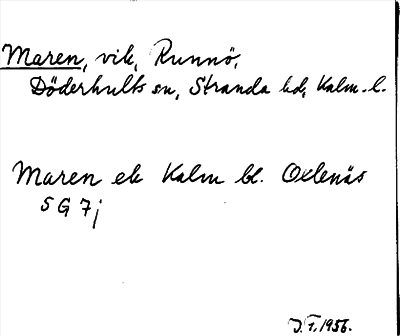 Maren, vik, Runnö,
Döderhults sn, Stranda hd, Kalm. l.
Maren ek Kalm bl. Oxlenäs
5 G 7j
J.T. 1956.